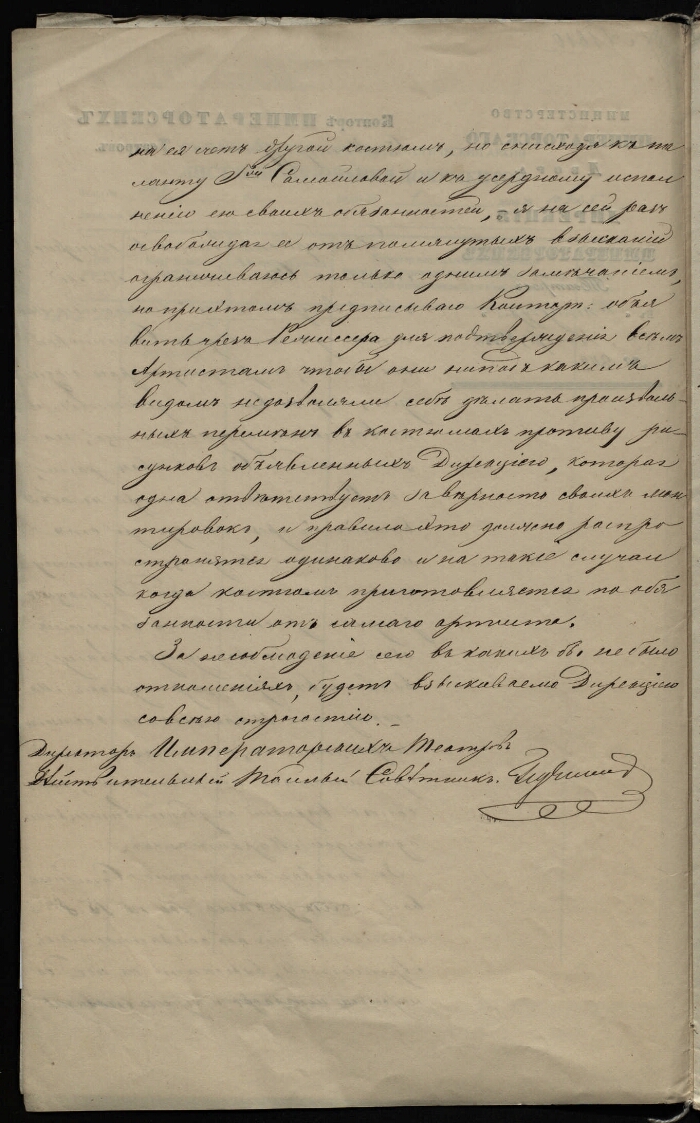 на ея счетъ другой костюмъ, но снисходя къ та
ланту Г-жи Самойловой и къ усердному испол
ненію ею своихъ обязанностей, я на сей разъ
освобождая ее отъ помянутыхъ взысканій
ограничиваюсь только однимъ замѣчаніемъ,
но при этомъ предписываю Контор: объя
вить чрезъ Режиссера для подтвержденія всѣмъ
Артистамъ чтобы они ни подъ какимъ
видомъ недозволяли себѣ дѣлать произволь
ныхъ перемѣнъ въ костюмахъ противу ри
сунковъ объявленныхъ Дирекціею, которая
одна отвѣтствуетъ за вѣрность своихъ мон
тировокъ, и правило это должно распро
страняться одинаково и на такіе случаи
когда костюмъ приготовляется по обя
занности отъ самаго артиста.
За несоблюденіе сего въ какихъ бы не было
отношеніяхъ, будетъ взыскиваемо Дирекціею
со всею строгостію.
Директоръ Императорскихъ Театровъ
Дѣйствительный Тайный Совѣтникъ
МИНИСТЕРСТВО
ИМПЕРАТОРСКАГО
Конторѣ ИМПЕРАТОРСКИХЪ